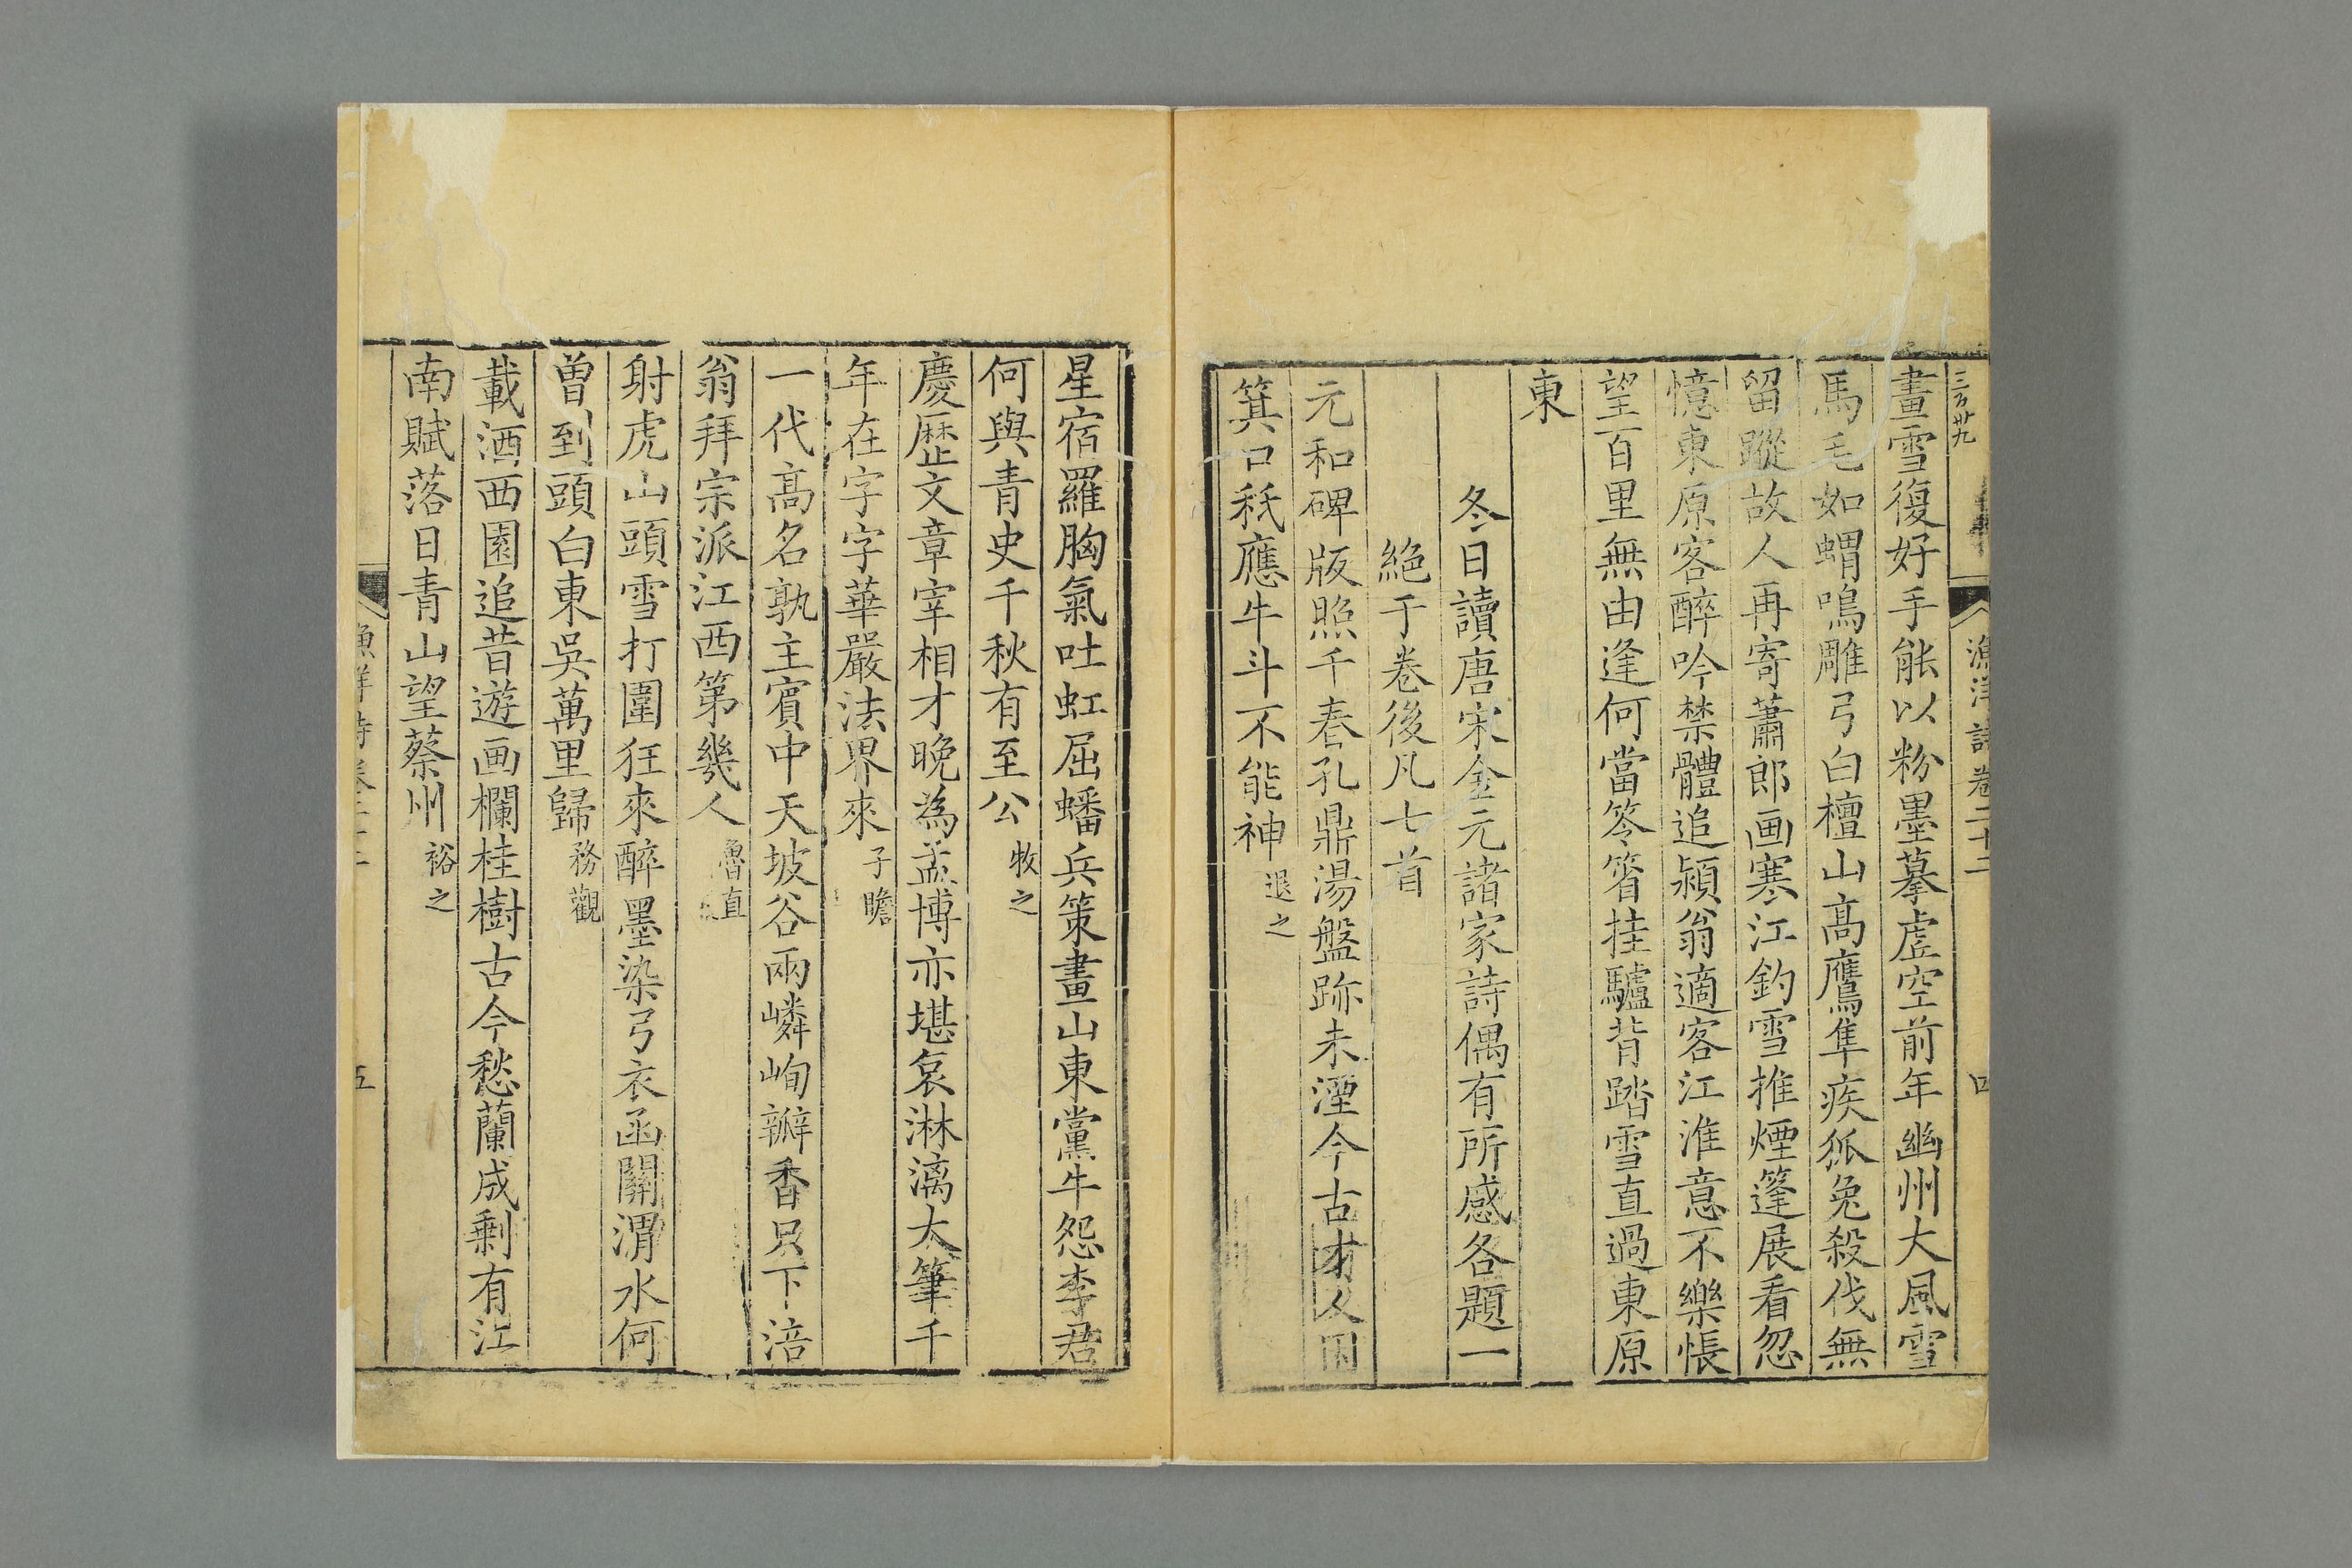 三百廿九
漁洋詩卷二十二
四
畫雪復好手能以粉墨摹虛空前年幽州大風雪
馬毛如蝟鳴雕弓白檀山高鷹隼疾狐兔殺伐無
留蹤故人再寄蕭郎画寒江釣雪推煙篷展看忽
憶東原客醉吟禁體追潁翁適客江淮意不樂悵
望百里無由逢何當笭箵挂驢背踏雪直過東原
東
冬日讀唐宋金元諸家詩偶有所感各題一
絕于卷後凡七首
元和碑版照千春孔鼎湯盤跡未湮今古才人困
箕口秖應牛斗不能神退之
星宿羅胸氣吐虹屈蟠兵策畫山東黨牛怨李君
何與青史千秋有至公牧之
慶歷文章宰相才晚為孟博亦堪哀淋漓大筆千
年在字字華嚴法界來子瞻
一代高名孰主賓中天坡谷兩嶙峋瓣香只下涪
翁拜宗派江西第幾人魯直
射虎山頭雪打圍狂來醉墨染弓衣函關渭水何
曾到頭白東吳萬里歸務觀
載酒西園追昔遊画欄桂樹古今愁蘭成剩有江
南賦落日青山望蔡州裕之
五